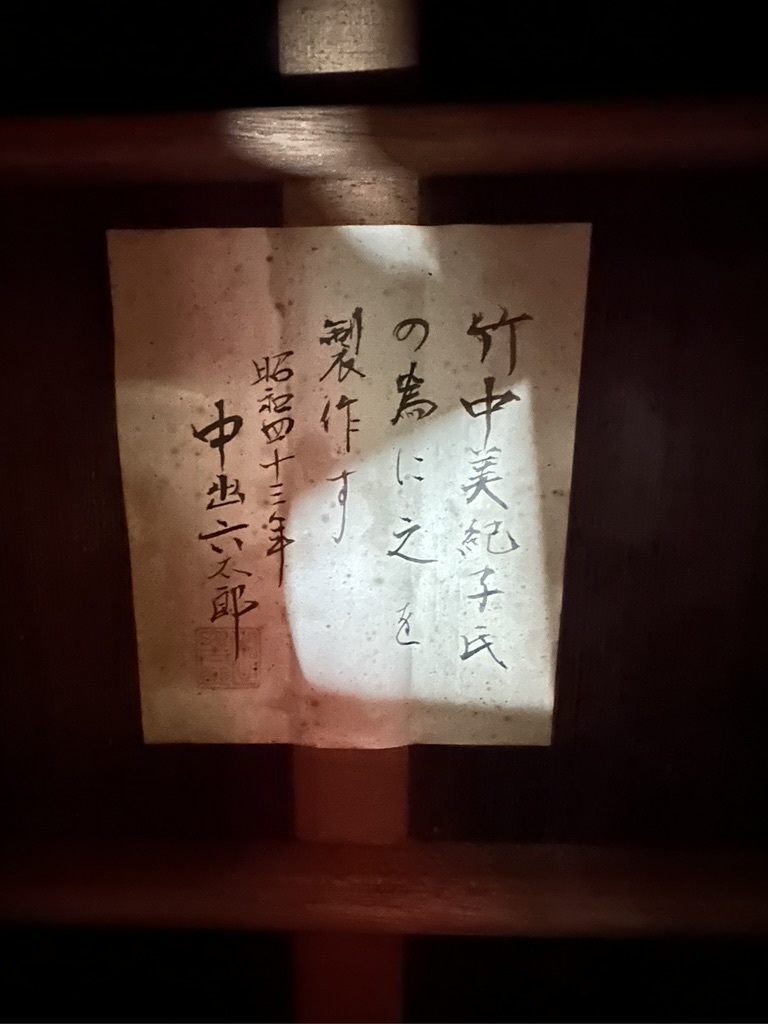 竹中美紀子氏
の為に之を
製作す
昭和四十三年
中出六太郎